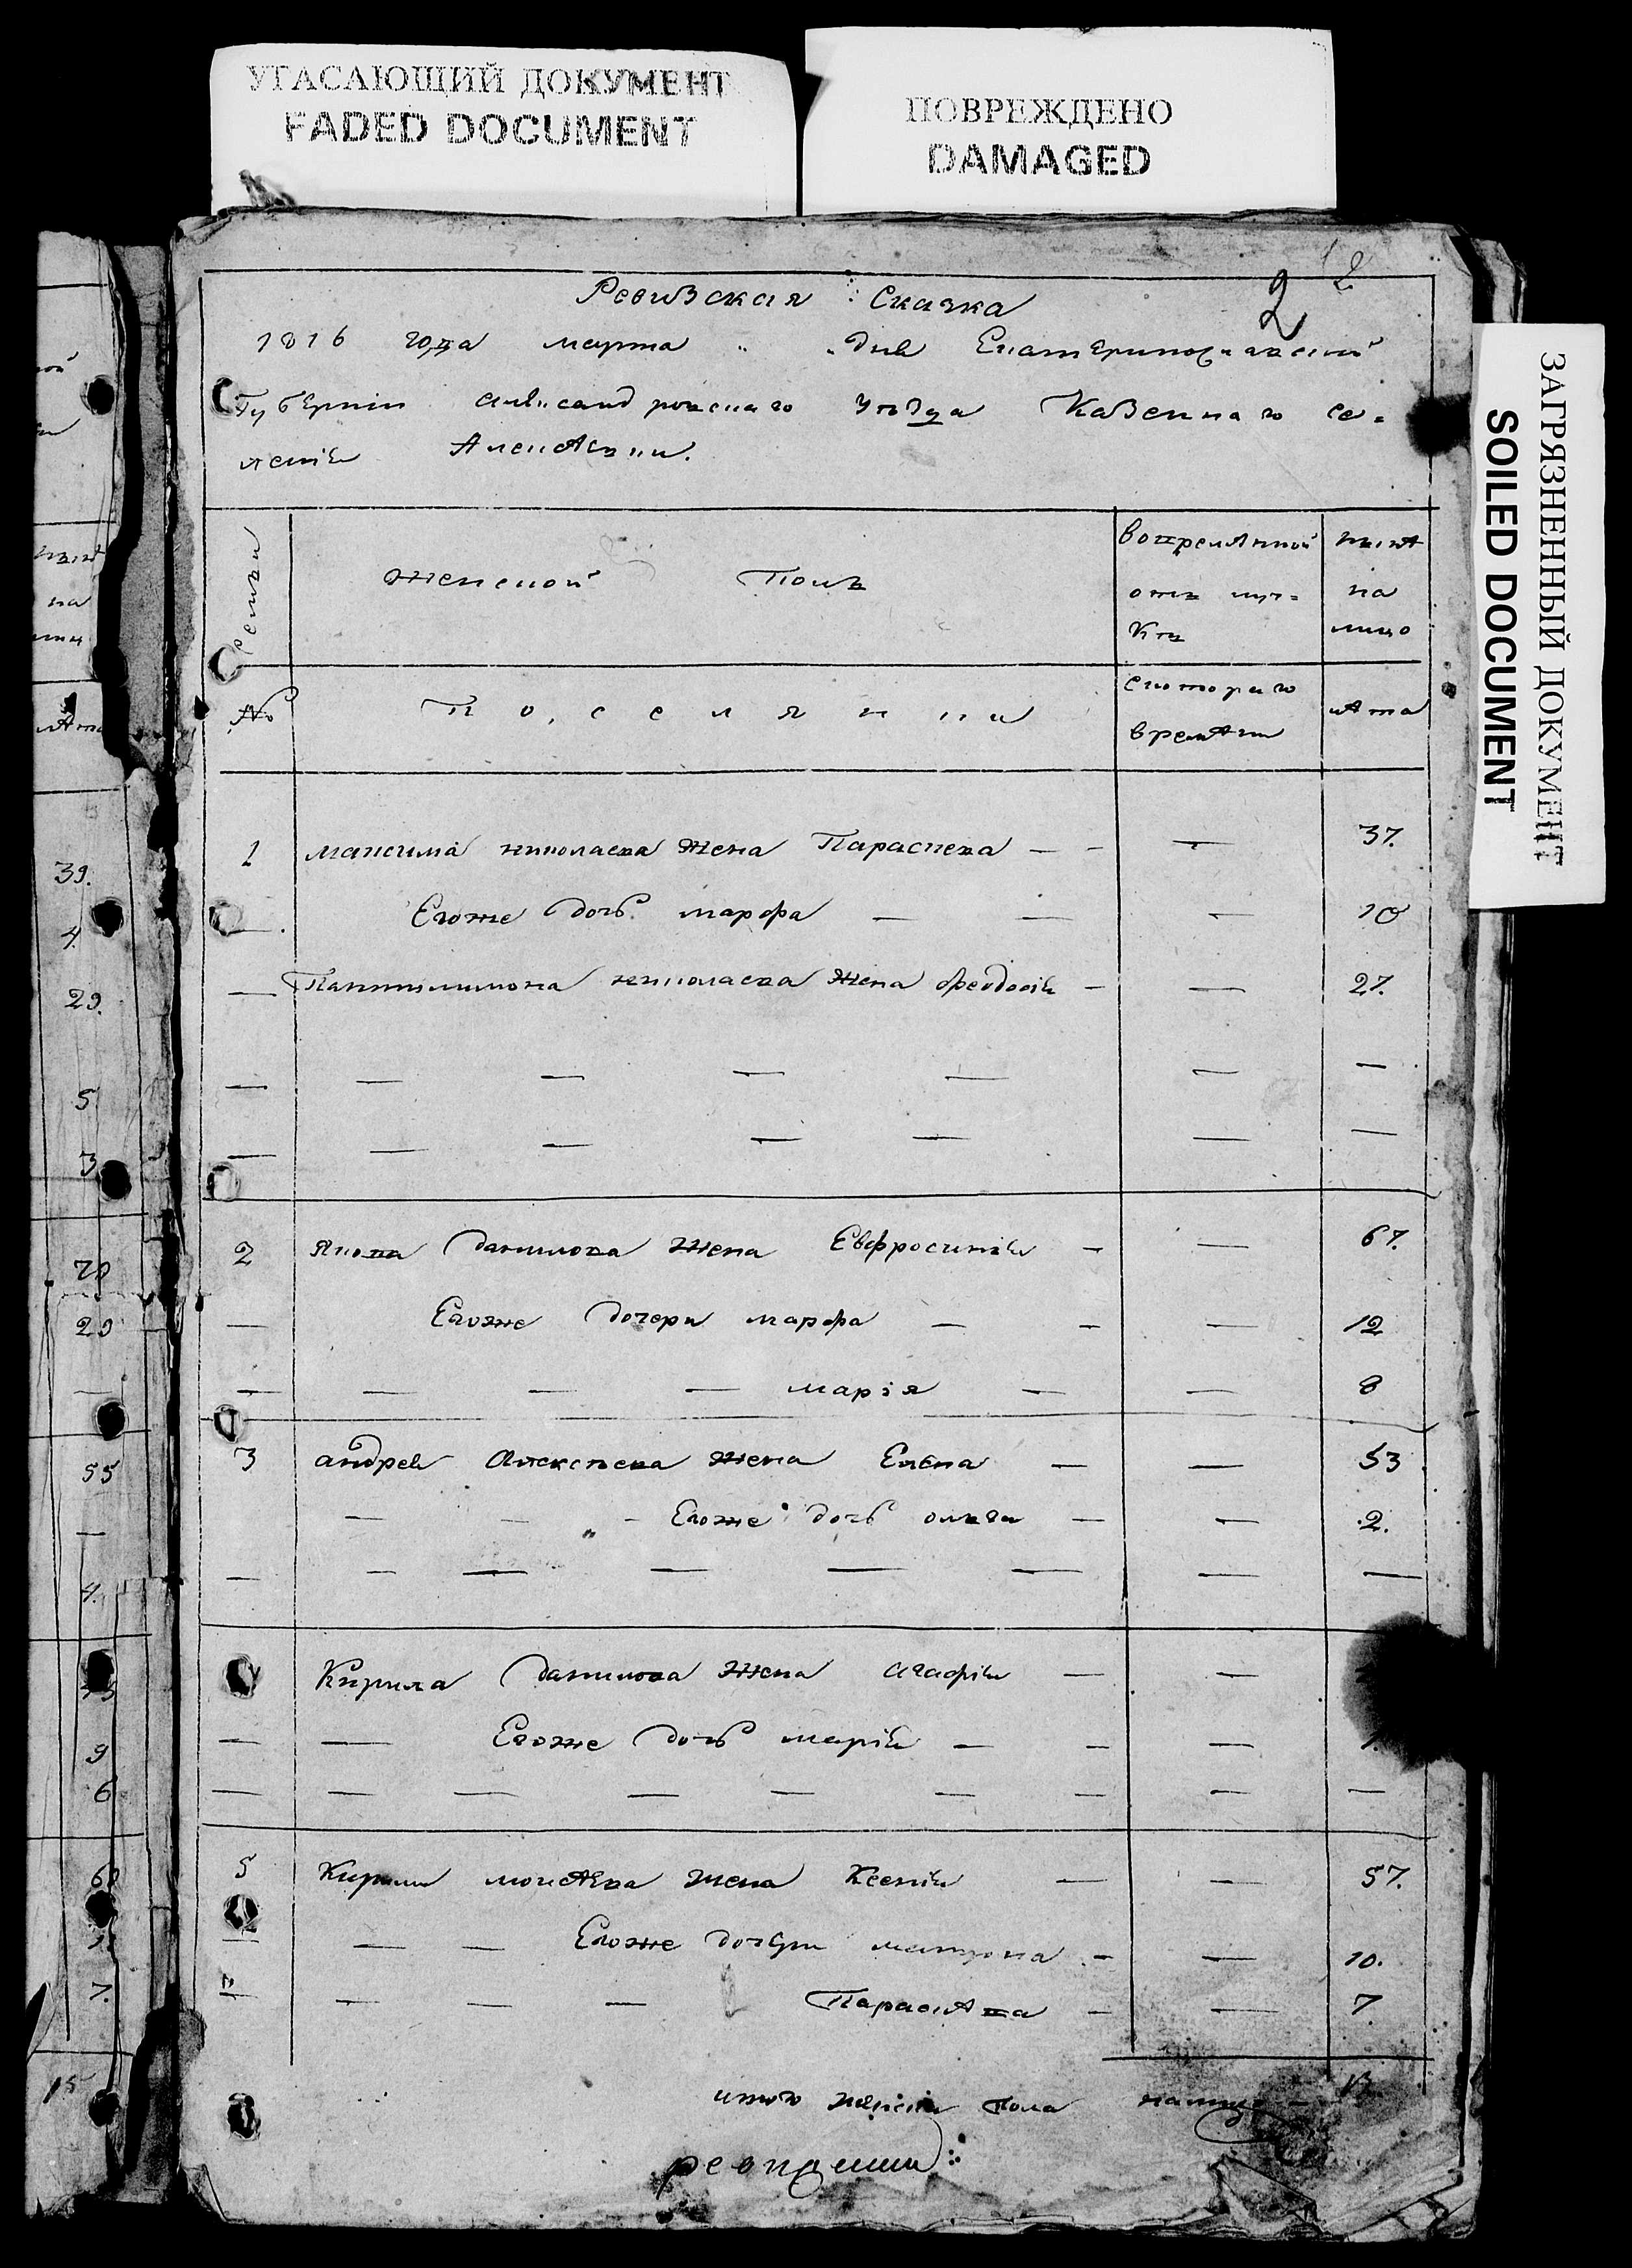 УГАСАЮЩИЙ ДОКУМЕНТ
FADED DOCUMENT
ПОВРЕЖДЕНО
DAMAGED
ЗАГРЯЗНЕННЫЙ ДОКУМЕНТ
SOILED DOCUMENT
2
Ревизская Сказка
1816 года марта дня Екатеринославской
Губерніи Александровскаго уѣзда Казеннаго се=
ленія
женской Полъ
вовременной отъ луч=ки
нынѣ на лицо
№
Поселянки
скотораго времѣни
лѣта
1 максима николаева жена Параскева — — — 37.
Егоже дочь марфа — — — 10
— Пантилимона николаева жена феодосія — — 27.
— — — — — — —
— — — — — — —
2 Якова данилова жена Евфросинія — — 67.
— Егоже дочери марфа — — — 12
— — — — марія — — 8
3 андрея Алексѣева жена Елена — — 53
— — — Егоже дочь олга — — 2.
— — — — — — — —
Кирила данилова жена агафія — —
— — Егоже дочь марія — — —
— — — — — — — — —
5 Кирили моисѣева жена Ксенія — — 57.
— — Егоже дочери матрона — — 10.
— — — Параскѣва — — 7
итого женска Пола
39.
4
29.
5
3
70
29
—
55
—
4.
9
6
7.
15